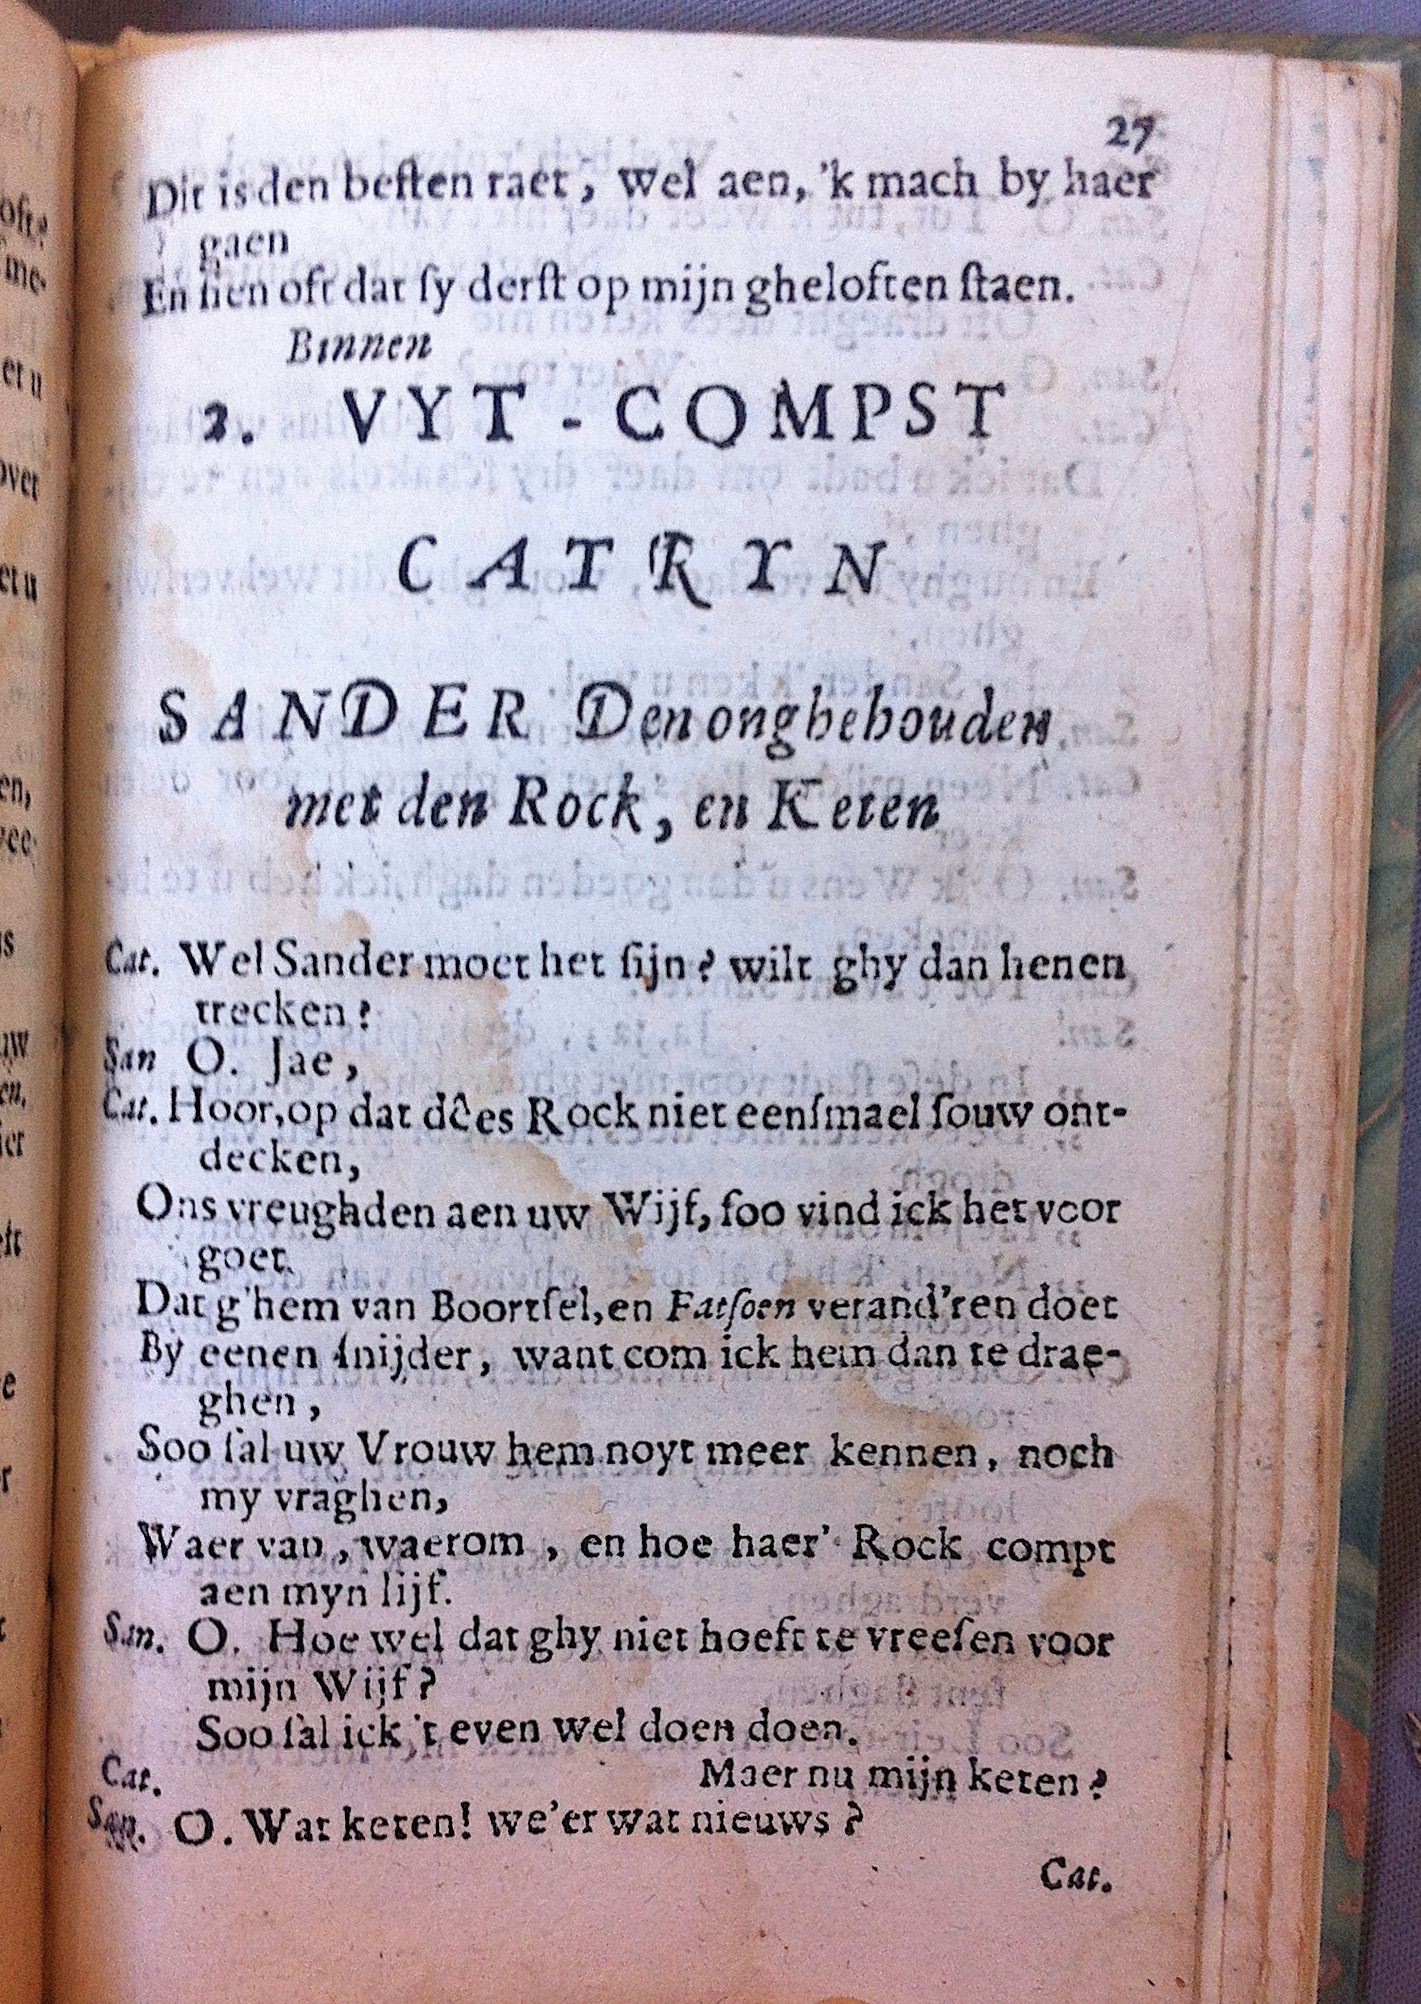 27
Dit is den besten raet, wel aen, 'k mach by haer
gaen
En sien oft dat sy derst op mijn gheloften staen.
Binnen
2. VYT-COMPST
CATRYN
SANDER Den onghehouden
met den Rock, en Keten
Cat. Wel Sander moet het sijn? wilt ghy dan henen
trecken?
San O. Jae,
Cat. Hoor, op dat dêes Rock niet eensmael souw ont-
decken,
Ons vreughden aen uw Wijf, soo vind ick het voor
goet.
Dat g'hem van Boortsel, en Fatsoen verand'ren doet
By eenen snijder, want com ick hem dan te drae-
ghen,
Soo sal uw Vrouw hem noyt meer kennen, noch
my vraghen,
Waer van, waerom, en hoe haer' Rock compt
aen myn lijf.
San. O. Hoe wel dat ghy niet hoeft te vreesen voor
mijn Wijf?
Soo sal ick 't even wel doen doen.
Cat. Maer nu mijn keten?
San. O. Wat keten! we'er wat nieuws?
Cat.